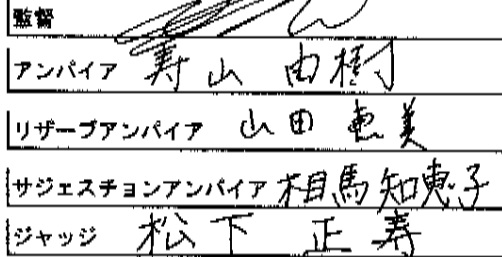 監督
アンパイア 寿山 由樹
リザーブアンパイア 山田 恵美
サジェスチョンアンパイア 相馬知恵子
ジャッジ 松下 正寿